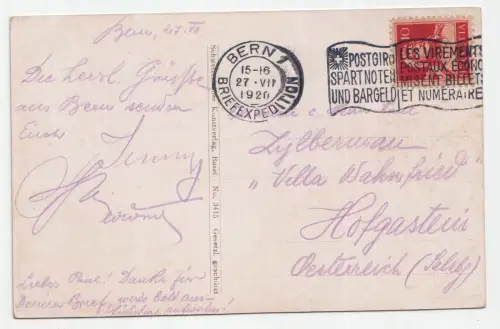 Bern, 27. VII
Die herzl. Grüsse
aus Bern senden
Euch
Jenny
Liebes Paul! Danke für
Deinen Brief, werde bald aus-
führlicher antworten!
Schweizerischer Kunstverlag, Basel No. 3415 Gesetzl. geschützt
BERN 1
15-16
27·VII
1920
BRIEFEXPEDITION
POSTGIRO
SPART NOTEN
UND BARGELD
LES VIREMENTS
POSTAUX ÉCONO
MISENT BILLETS
ET NUMÉRAIRE
10
Zylberman
"Villa Wahnfried"
Hofgastein
Oesterreich (Salzbg)